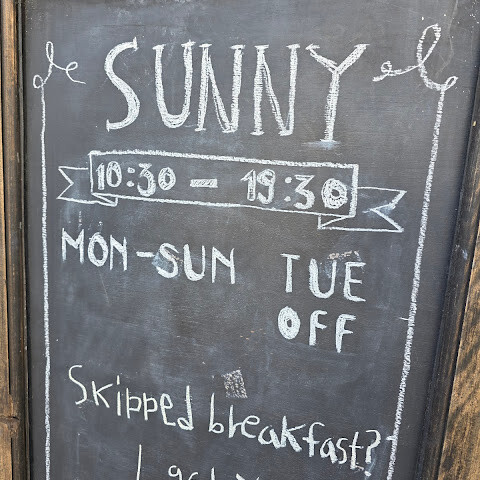 SUNNY
10:30 - 19:30
MON-SUN TUE
OFF
Skipped breakfast?